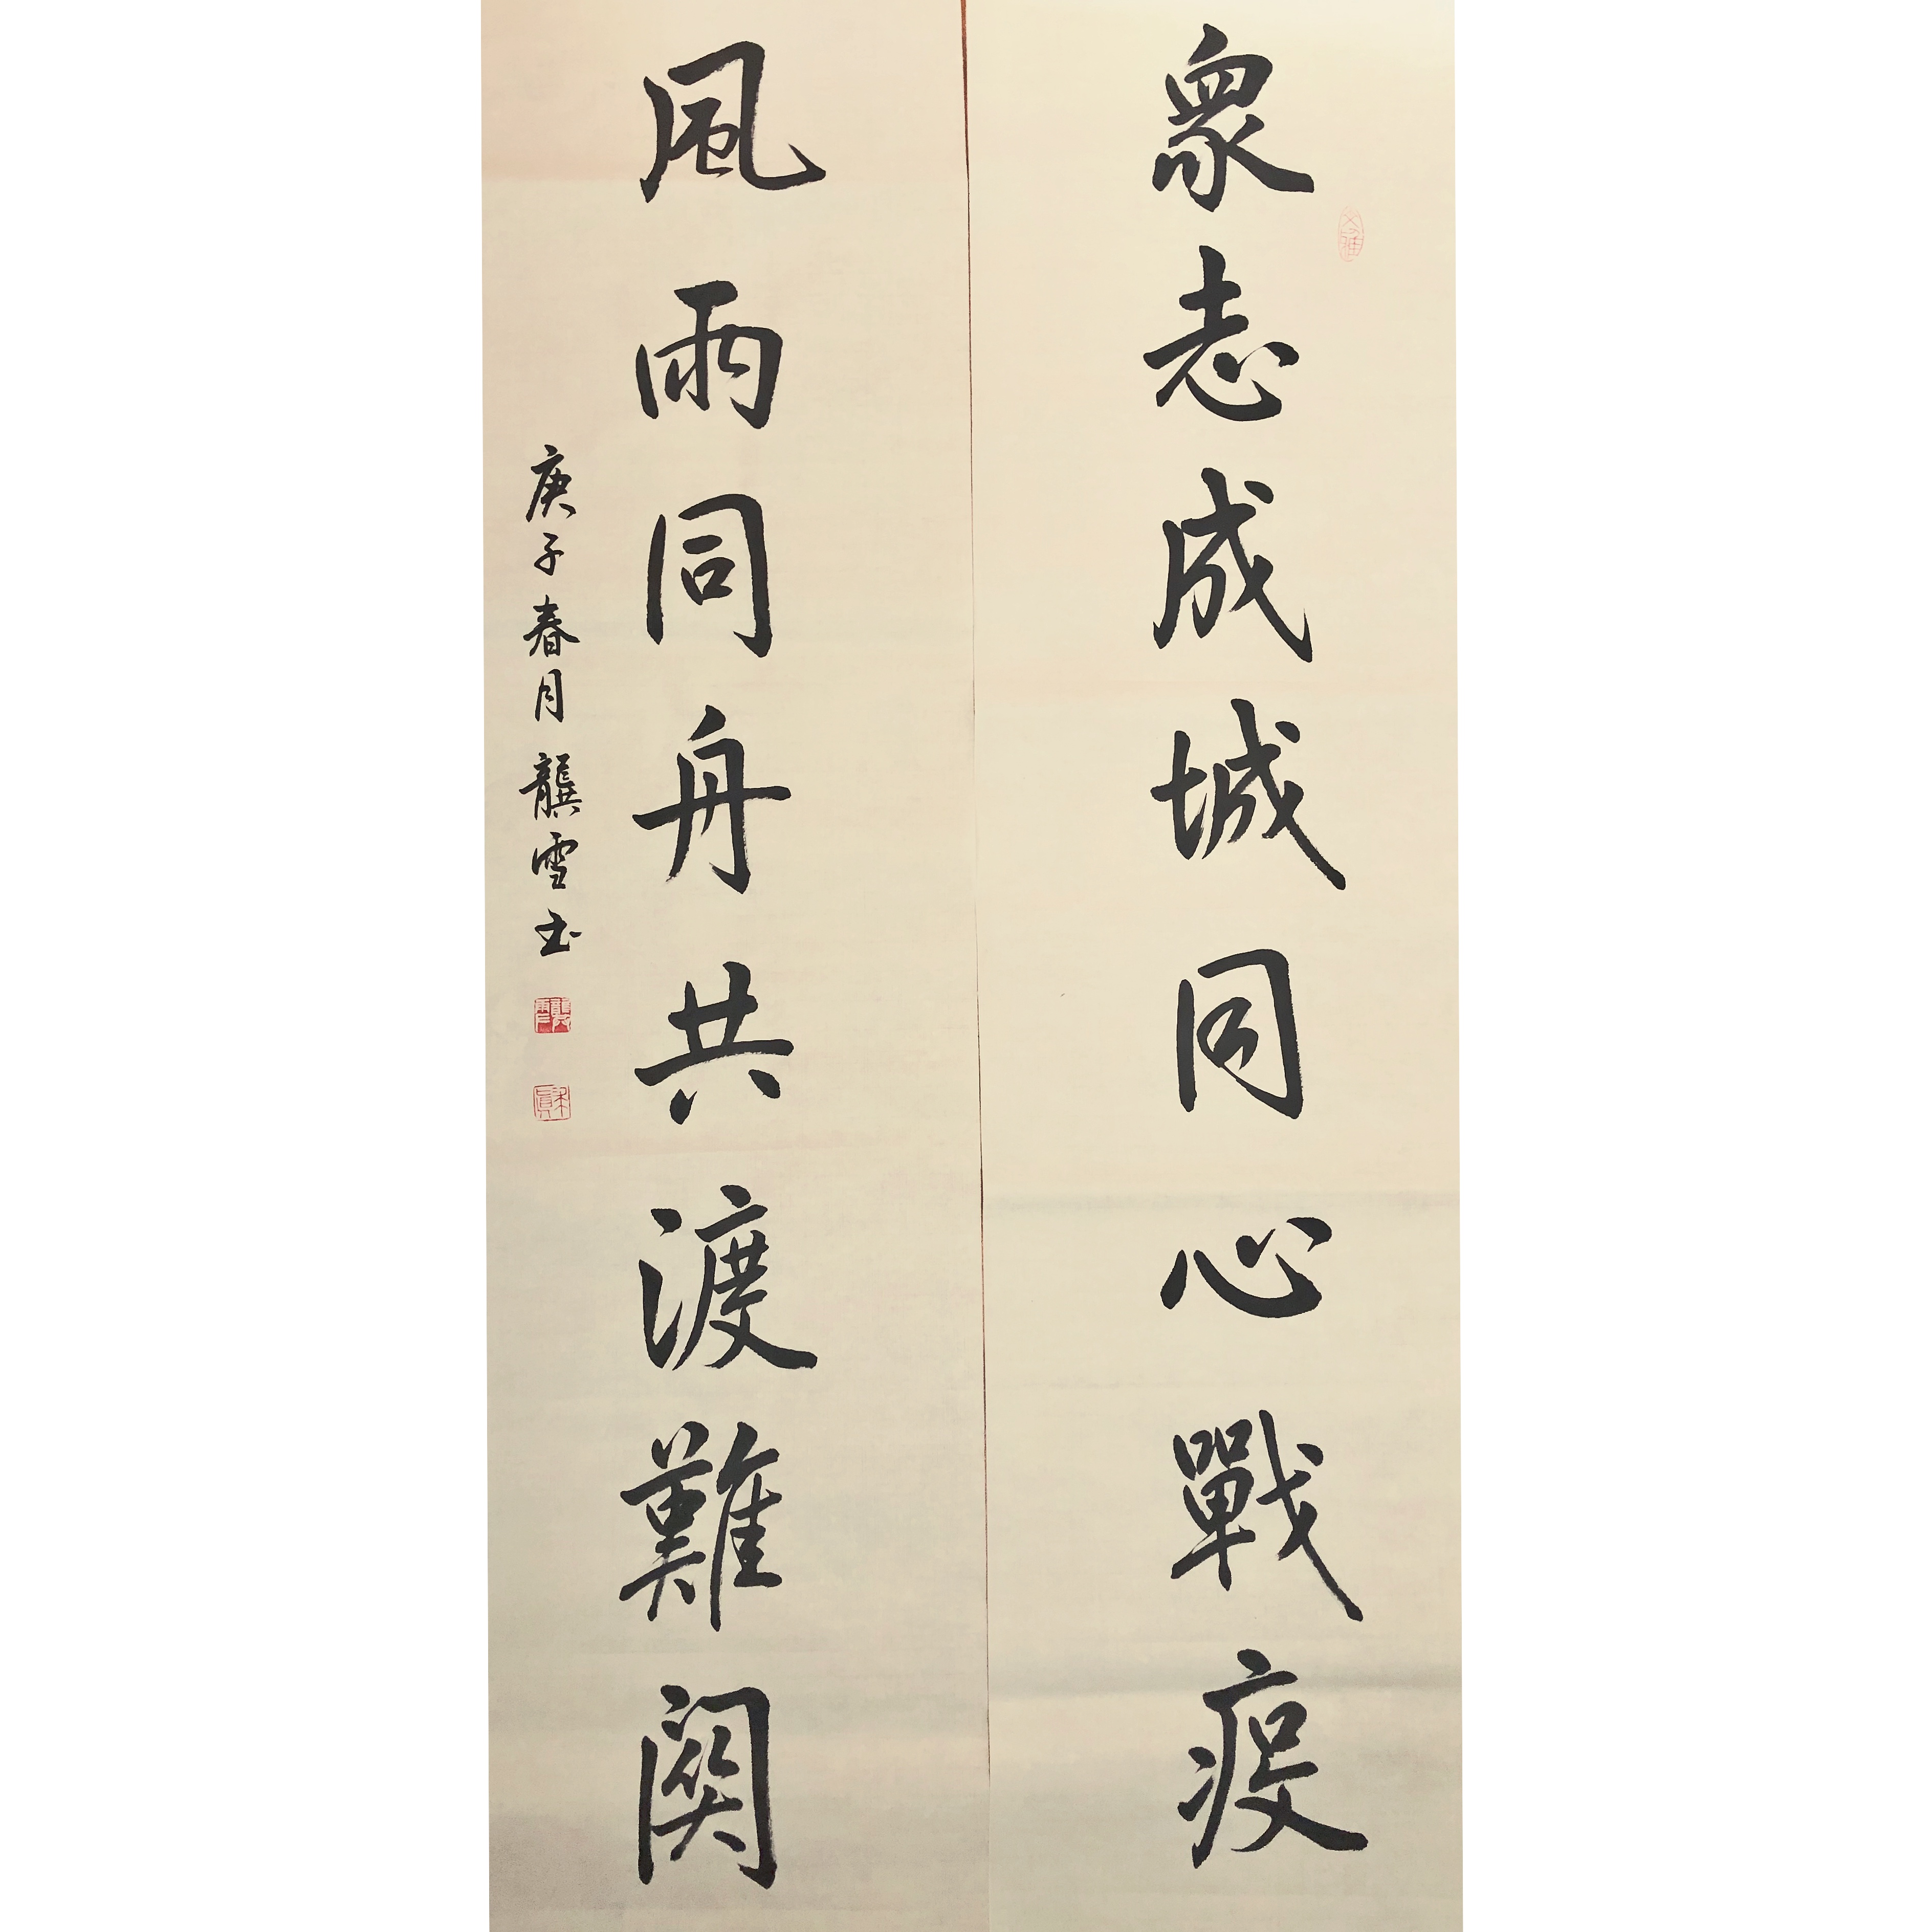 眾志成城同心戰疫
風雨同舟共渡難関
庚子春月龔雪书